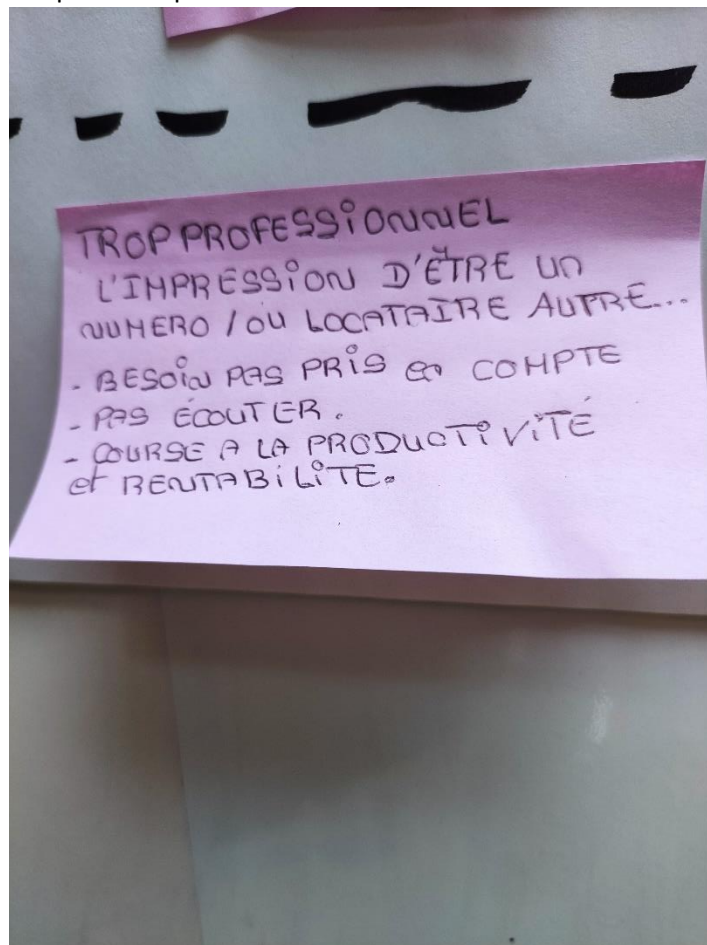 TROP PROFESSIONNEL
L'IMPRESSION D'ÊTRE UN
NUMERO / OU LOCATAIRE AUTRE...
- BESOIN PAS PRIS en COMPTE
- PAS ÉCOUTER.
- COURSE A LA PRODUCTIVITÉ
et RENTABILITE.